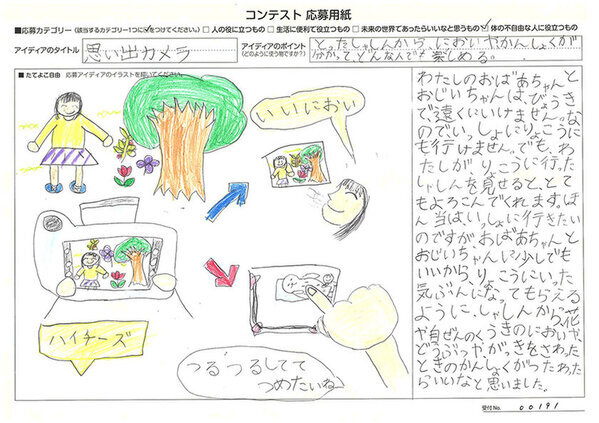 コンテスト 応募用紙
■応募カテゴリー(該当するカテゴリー1つに✓をつけてください。) □ 人の役に立つもの □ 生活に便利で役立つもの □ 未来の世界であったらいいなと思うもの ☑ 体の不自由な人に役立つもの
アイディアのタイトル
思い出カメラ
アイディアのポイント
(どのように使う物ですか?)
とったしゃしんから、においやかんしょくが
分かって、どんな人でも楽しめる。
■ たてよこ自由 応募アイディアのイラストを描いてください。
いいにおい
ハイチーズ
つるつるしてて
つめたいね
わたしのおばあちゃんと
おじいちゃんは、びょうき
で、遠くにいけません。な
のでいっしょにりょこうに
も行けません。でも、わ
たしがりょこうに行った
しゃしんを見せると、とて
もよろこんでくれます。ほ
ん当はいっしょに行きたい
のですが、おばあちゃんと
おじいちゃんに少しでも
いいから、りょこうにいった
気ぶんになってもらえる
ように、しゃしんから花
や自ぜんのくうきのにおいや、
どうぶつや、がっきをさわった
ときのかんしょくがつたわった
らいいなと思いました。
受付No. 00191